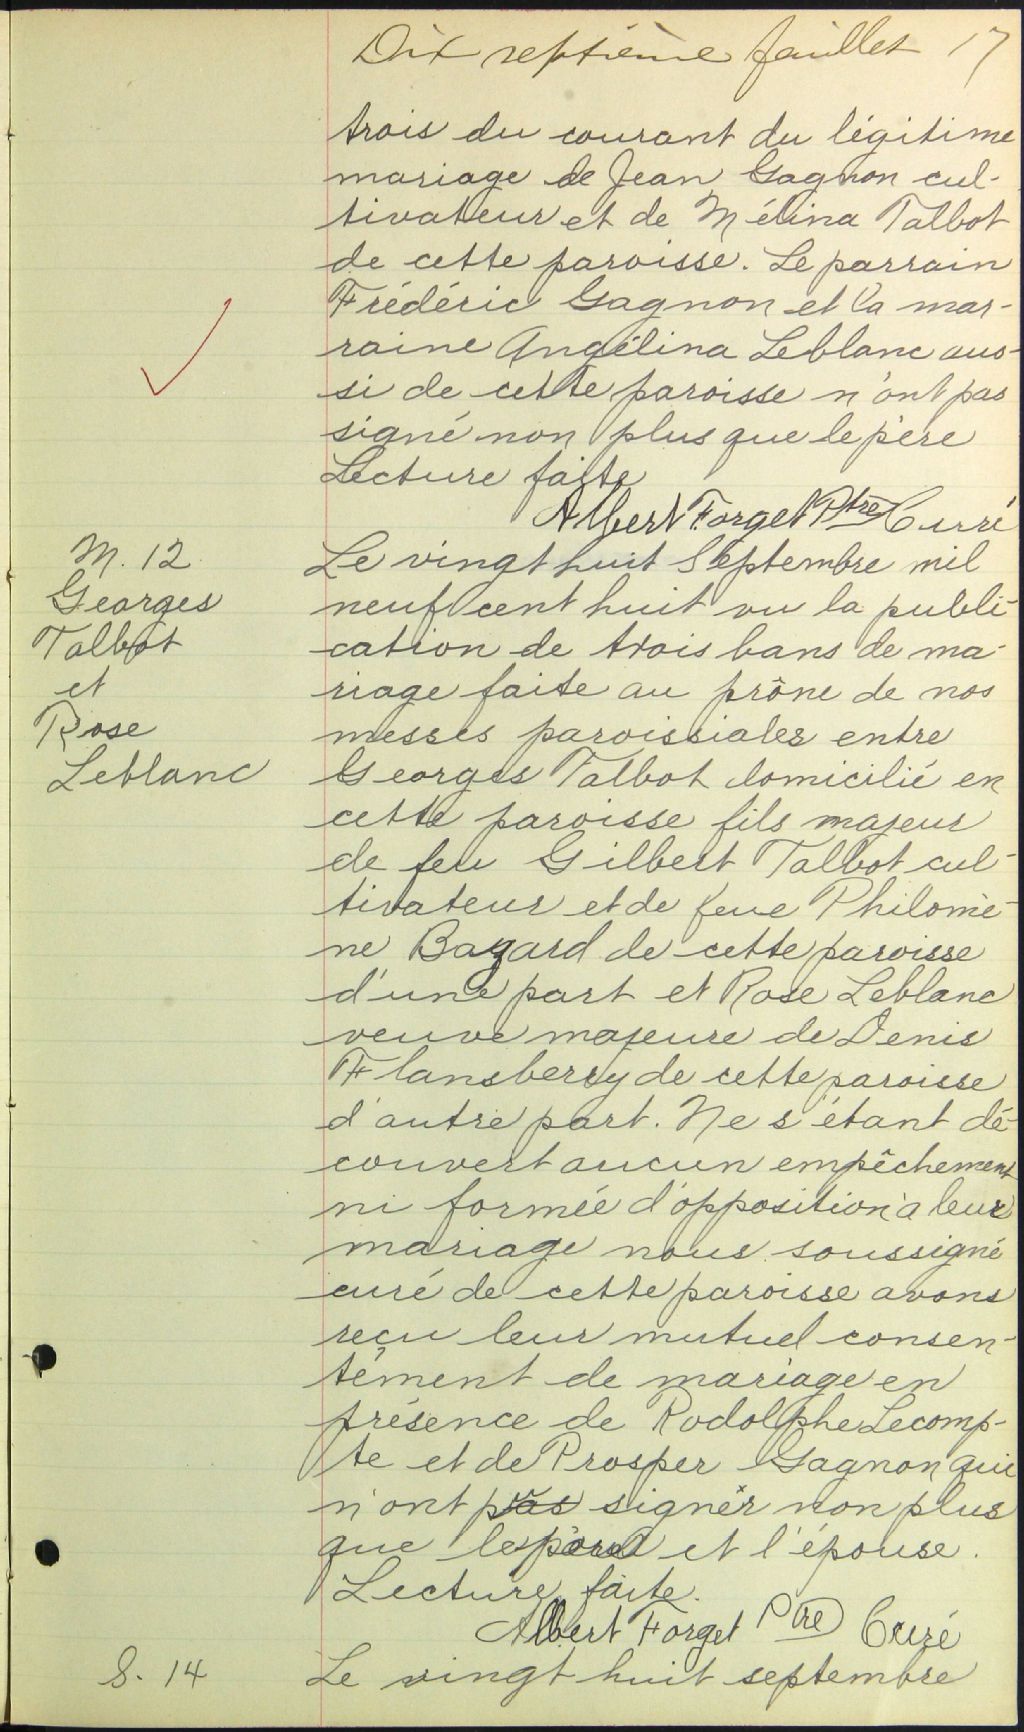 Dix septième feuillet 17
trois du courant du légitime
mariage de Jean Gagnon cul-
tivateur et de Mélina Talbot
de cette paroisse. Le parrain
Frédéric Gagnon et la mar-
raine Angélina Leblanc aus-
si de cette paroisse n'ont pas
signé non plus que le père
Lecture faite
Albert Forget Ptre Curé
M. 12
Georges
Talbot
et
Rose
Leblanc
Le vingt huit Septembre mil
neuf cent huit vu la publi-
cation de trois bans de ma-
riage faite au prône de nos
messes paroissiales entre
Georges Talbot domicilié en
cette paroisse fils majeur
de feu Gilbert Talbot cul-
tivateur et de feue Philomè-
ne Bazard de cette paroisse
d'une part et Rose Leblanc
veuve majeure de Denis
Flansberry de cette paroisse
d'autre part. Ne s'étant dé-
couvert aucun empêchement
ni formée d'opposition à leur
mariage nous soussigné
curé de cette paroisse avons
reçu leur mutuel consen-
tement de mariage en
présence de Rodolphe Lecomp-
te et de Prosper Gagnon qui
n'ont pas signer non plus
que et l'épouse.
Lecture faite.
Albert Forget Ptre Curé
S. 14
Le vingt huit septembre